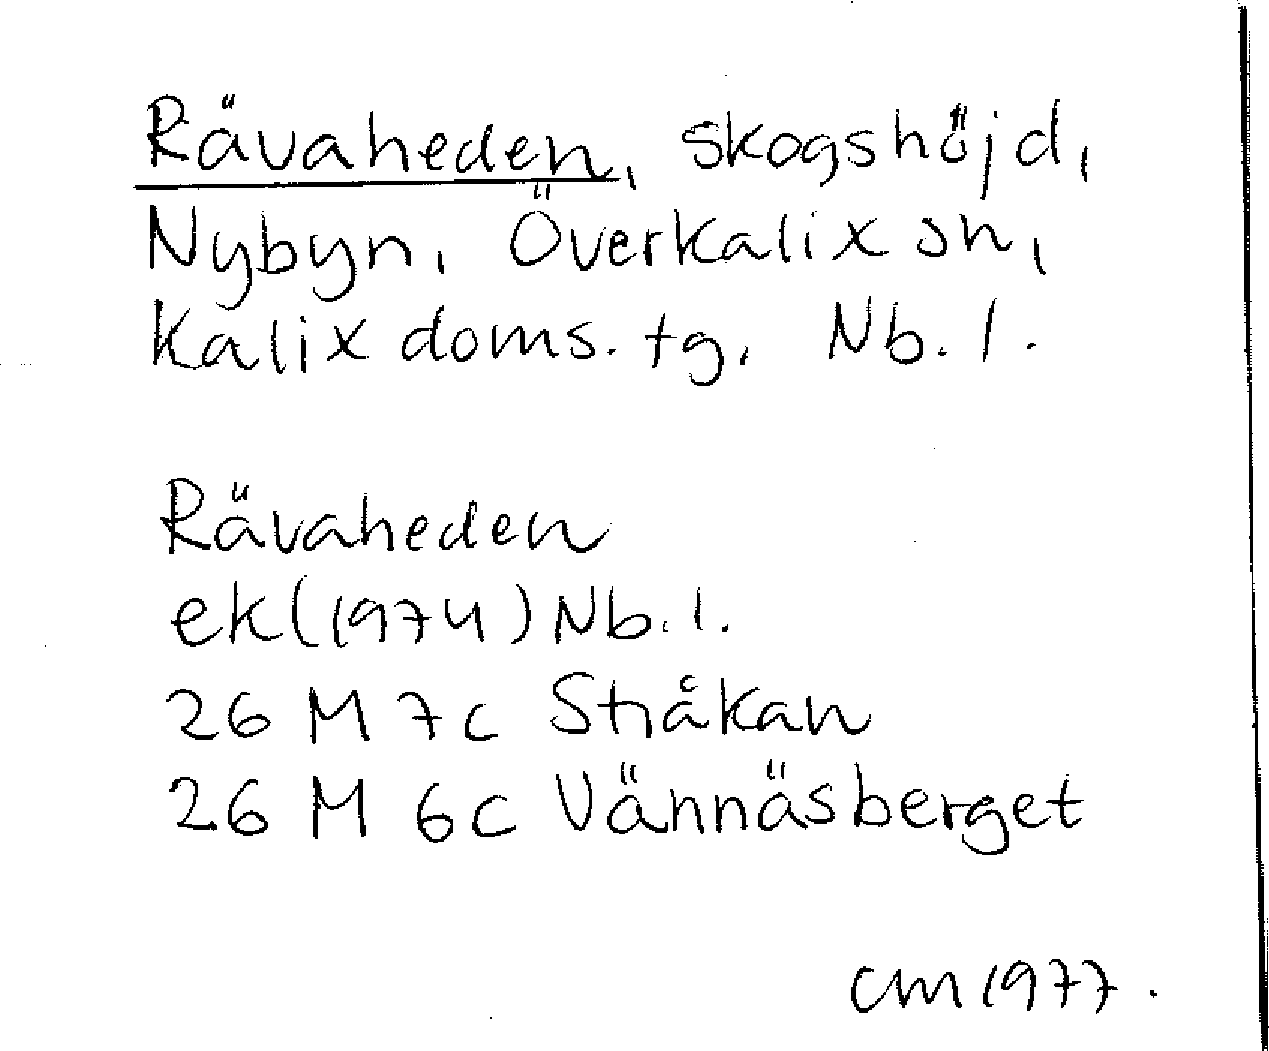 Rävaheden, skogshöjd,
Nybyn, Överkalix sn,
Kalix doms. tg, Nb. l.
Rävaheden
ek (1974) Nb. l.
26 M 7c Stråkan
26 M 6c Vännäsberget
cm 1977.